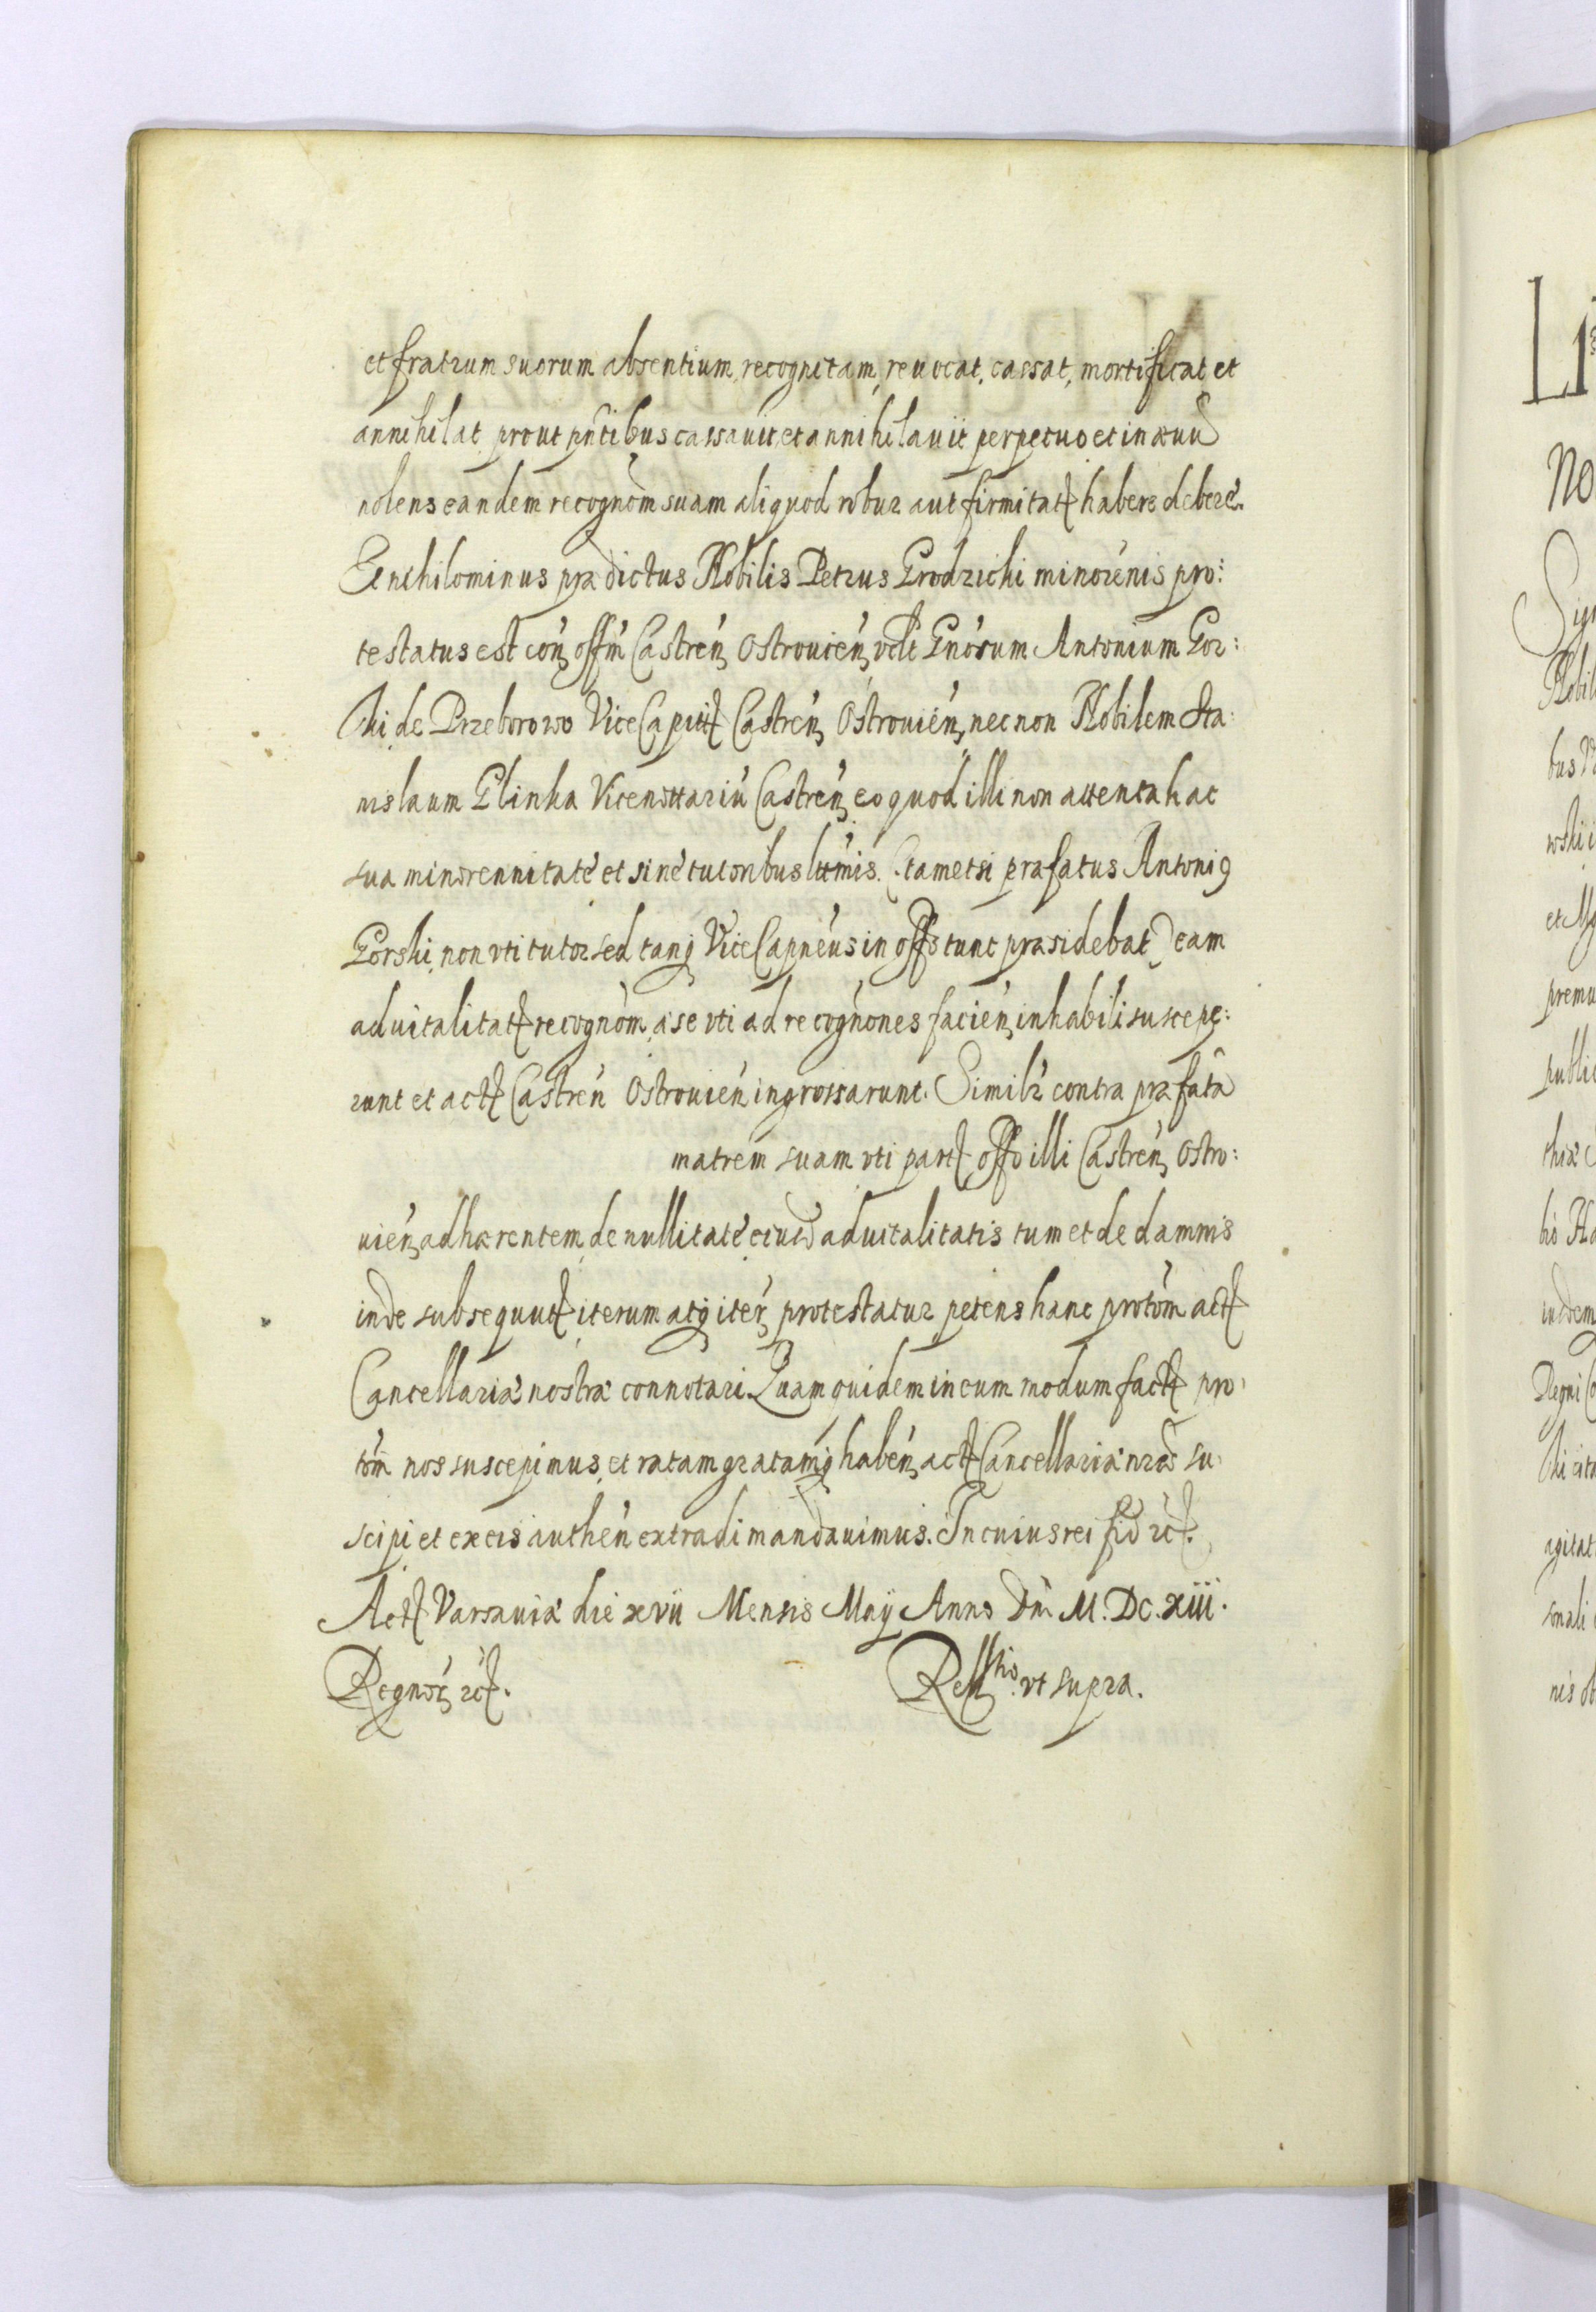 et fratrum suorum absentium, recognitam, reuocat, cassat, mortificat et
annihilat prout pñtibus cassauit et annihilauit perpetuo et in æuũ
nolens eandem recognõm suam aliquod robur aut firmitatẽ habere debere.
Et nihilominus prædictus Nobilis Petrus Grodzicki minorenis pro:
testatus est coñ offm̃ Castreñ Ostrouieñ vdlt Gñosum Antonium Gor:
ski de Przeborowo ViceCapit Castreñ Ostrouieñ, nec non Nobilem Sta:
nislaum Glinka Vicenottariũ Castreñ eo quod illi non attenta hac
sua minorennitate et sine tutoribus lttmis (tametsi præfatus Antoni9
Gorski, non vti tutor sed tanq ViceCapneus in offo tunc præsidebat) eam
aduitalitatẽ recognõm, a se vti ad recognones facieñ, inhabili suscepe:
runt et act Castreñ Ostrouieñ ingrossarunt. Similr contra præfatã
matrem suam vti partẽ offo illi Castreñ Ostro:
uieñ adhærentem, de nullitate eiusd aduitalitatis tum et de damnis
inde subsequut iterum atq iter protestatur petens hanc protõm act
Cancellariæ nostræ connotari. Quam quidem in eum modum fact pro:
tõm nos suscepimus, et ratam gratamq habeñ, act Cancellariæ nræ su:
scipi et ex eis autheñ extradi mandauimus. In cuius rei fid rc.
Act Varsauiæ die xvii Mensis Maÿ Anno Dñi M. DC. xiii.
Regnor rc.
Rellatio vt supra.
Li
No
Sig
Nobil
bus
et
premu
publi
thiæ
Ha
Regni
agitat
sonali
nis ob